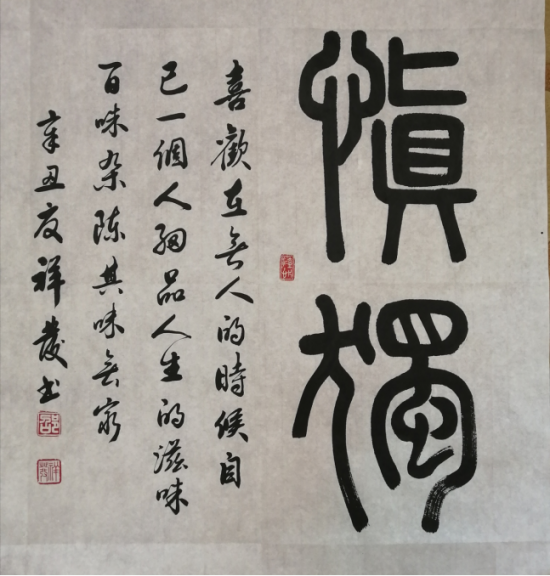 慎獨
喜歡在無人的時候自
己一個人細品人生的滋味
百味杂陈其味無窮
辛丑友祥發书